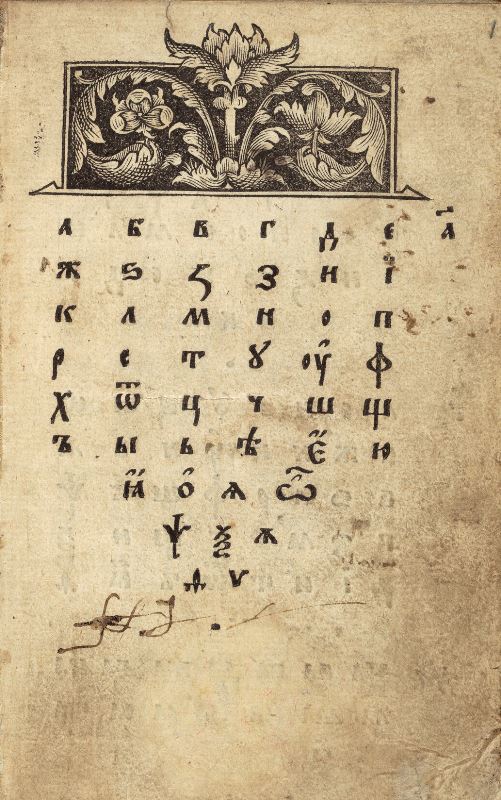 а҃
а б в г д е
ж ѕ ꙁ з и ї
к л м н о п
р с т ꙋ оу ф
х ѿ ц ч ш щ
ъ ы ь ѣ є ю
ꙗ о ѧ ѽ
ѱ ѯ ѫ
ѳ ѵ